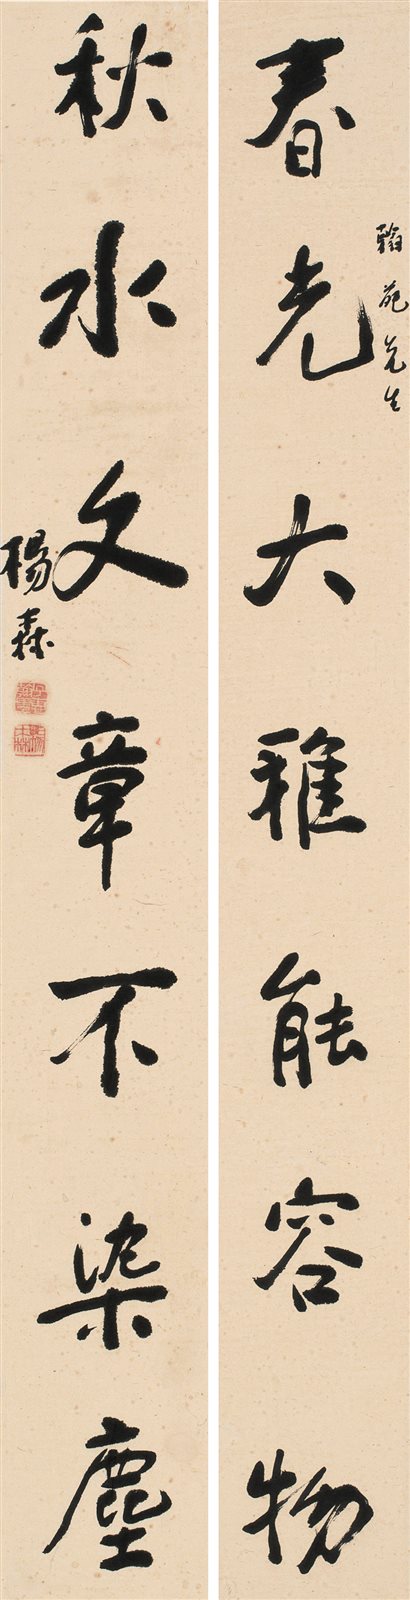 春光大雅能容物
翰苑先生
秋水文章不染塵
楊森